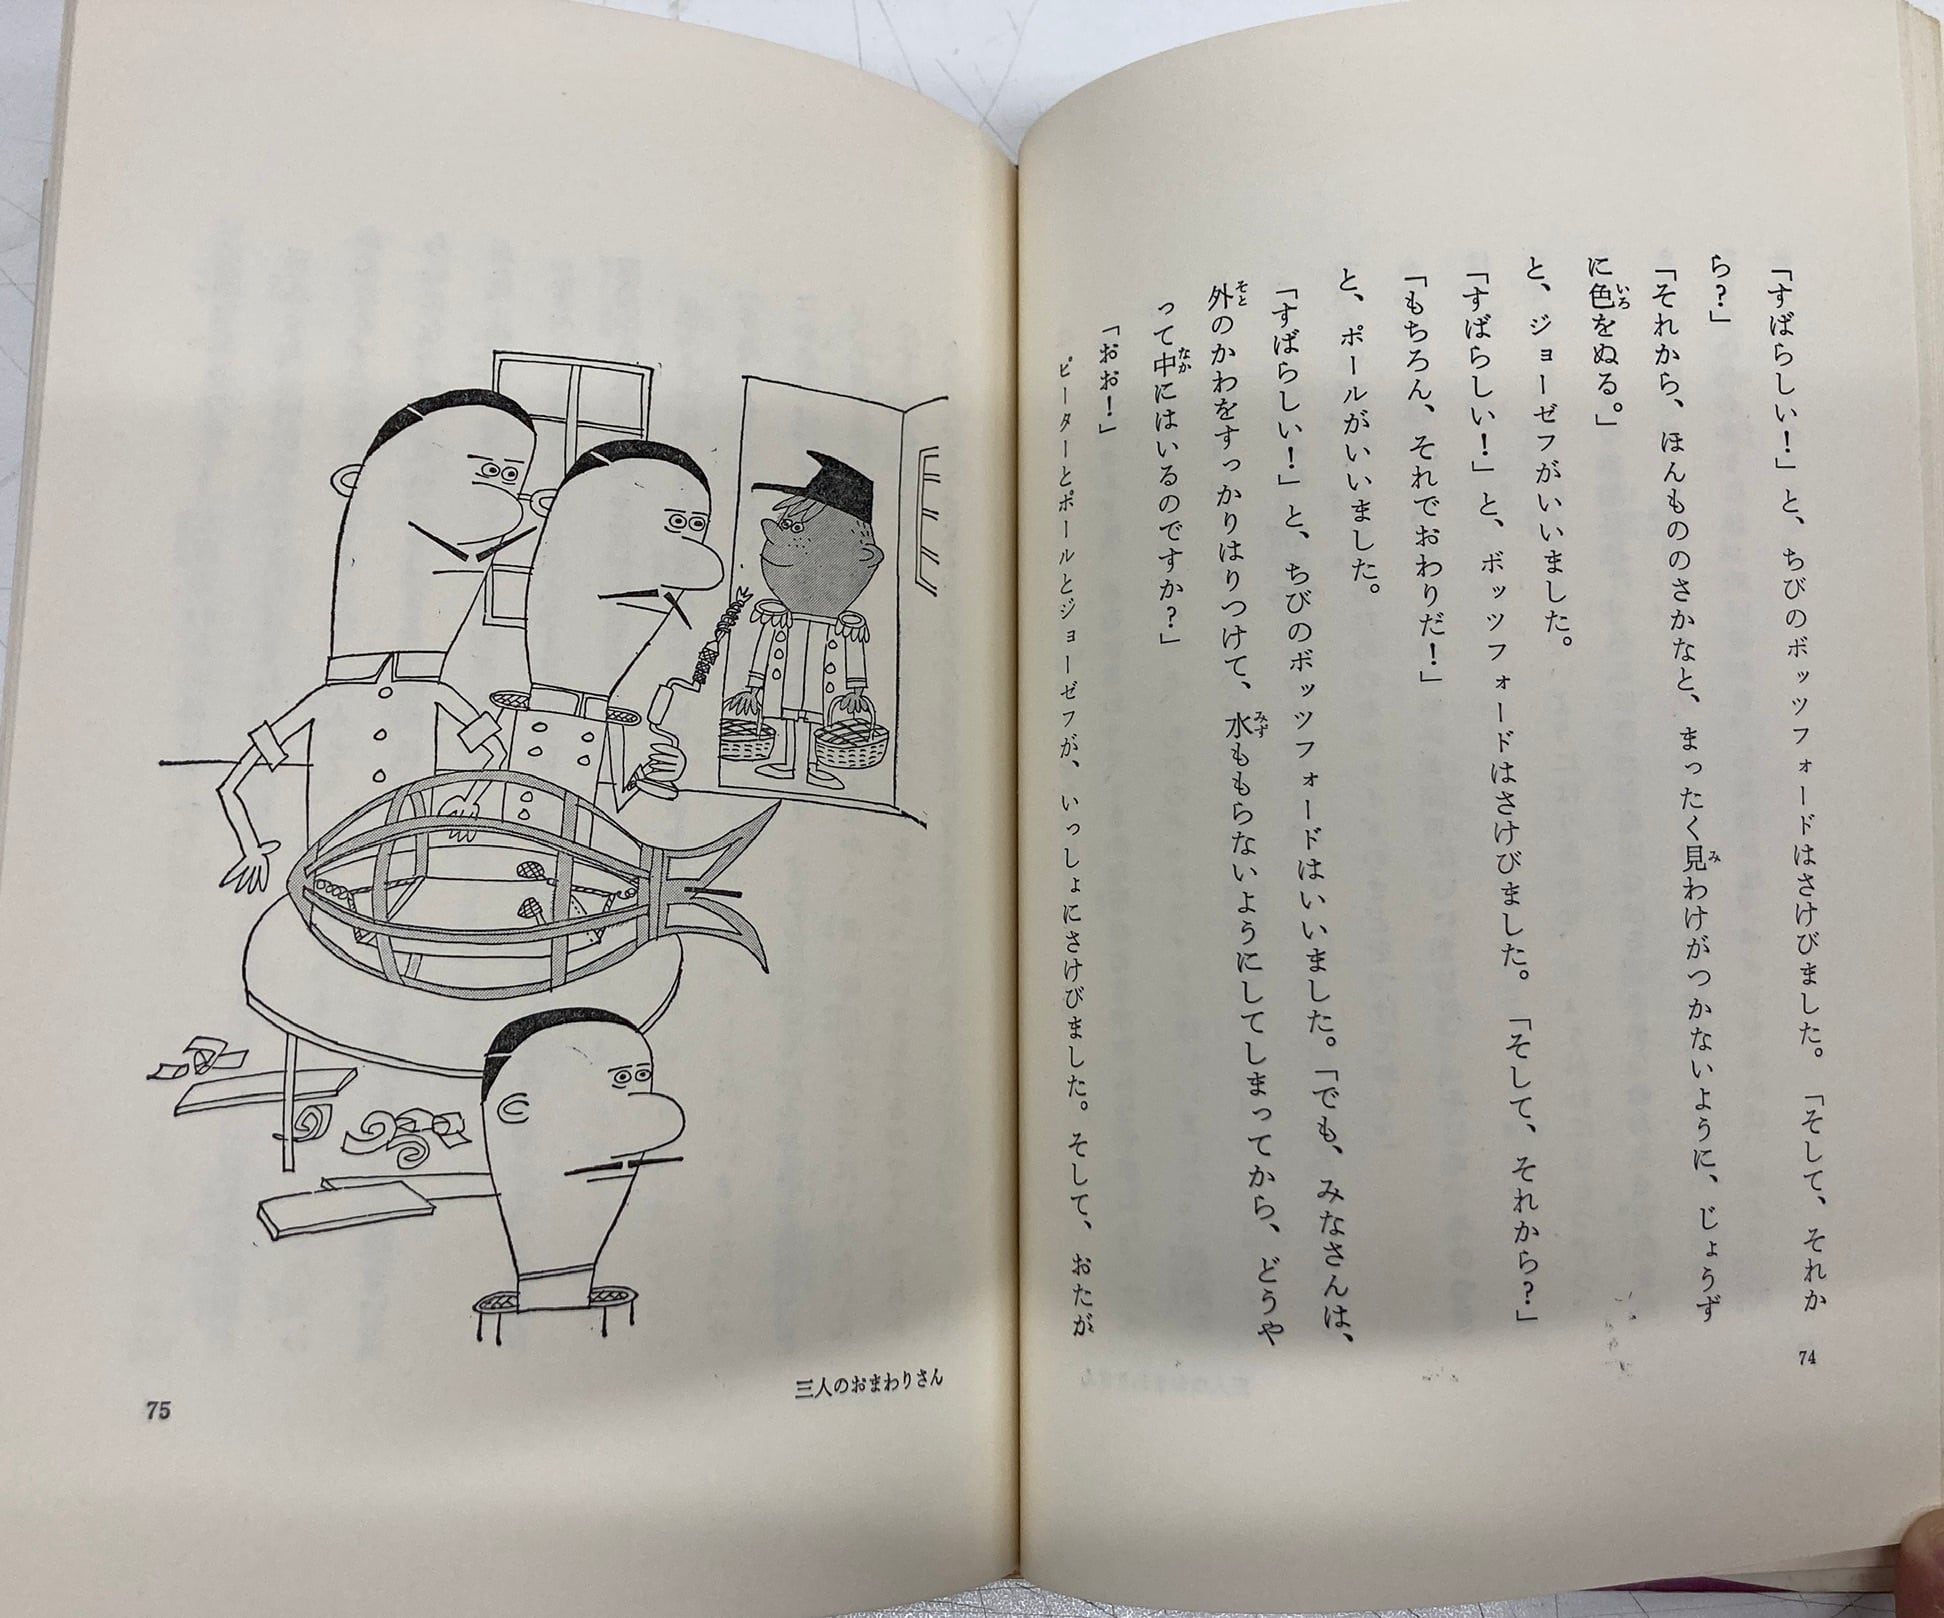 「すばらしい！」と、ちびのボッツフォードはさけびました。「そして、それか
ら？」
「それから、ほんもののさかなと、まったく見わけがつかないように、じょうず
に色をぬる。」
と、ジョーゼフがいいました。
「すばらしい！」と、ボッツフォードはさけびました。「そして、それから？」
「もちろん、それでおわりだ！」
と、ポールがいいました。
「すばらしい！」と、ちびのボッツフォードはいいました。「でも、みなさんは、
外のかわをすっかりはりつけて、水ももらないようにしてしまってから、どうや
って中にはいるのですか？」
「おお！」
ピーターとポールとジョーゼフが、いっしょにさけびました。そして、おたが
74
三人のおまわりさん
75